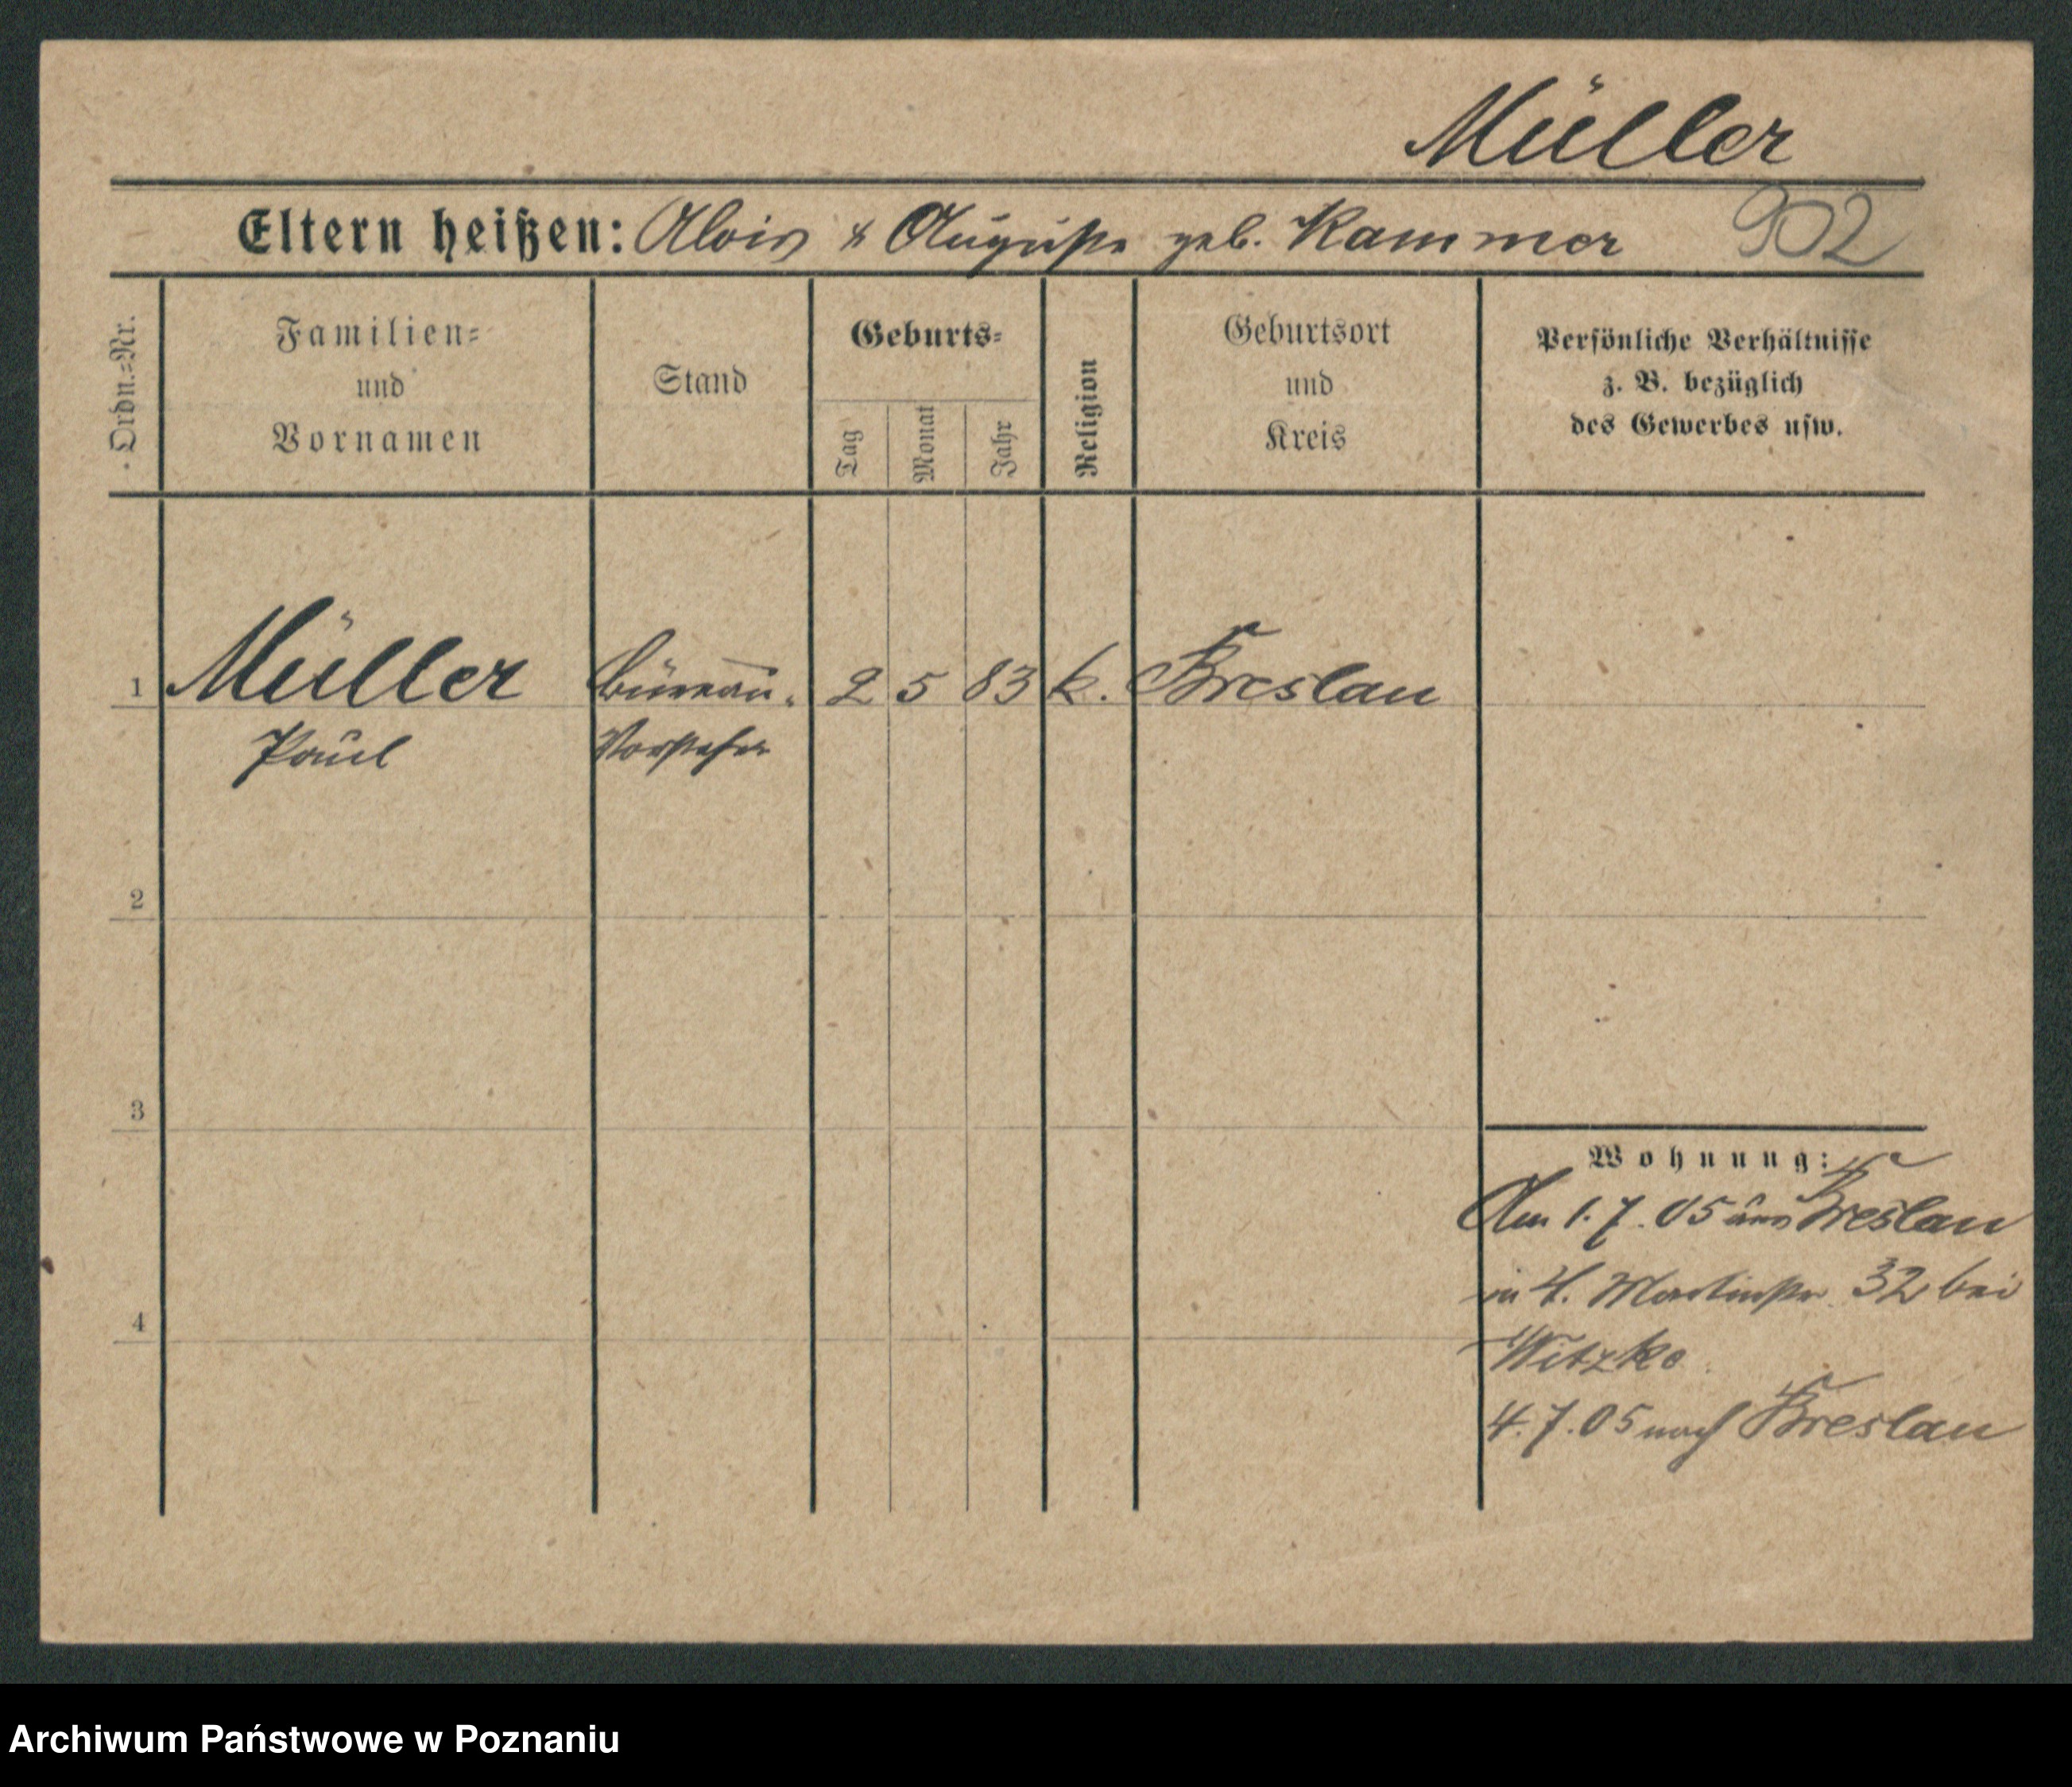 Müller
Eltern heißen: Alois & Auguste geb. Kammer 902
Ordn.=Nr.
Familien=
und
Vornamen
Stand
Geburts=
Tag
Monat
Jahr
Religion
Geburtsort
und
Kreis
Persönliche Verhältnisse
z. B. bezüglich
des Gewerbes usw.
1 Müller Büreau- 2 5 83 k. Breslau
Paul Vorsteher
2
3
Wohnung:
Am 1.7.05 aus Breslau
in 4. Martinstr. 32 bei
4
Witzke
4.7.05 nach Breslau
Archiwum Państwowe w Poznaniu